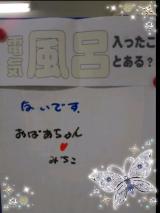 電気風呂入ったことある?
ないです。
おばあちゃん
みちこ